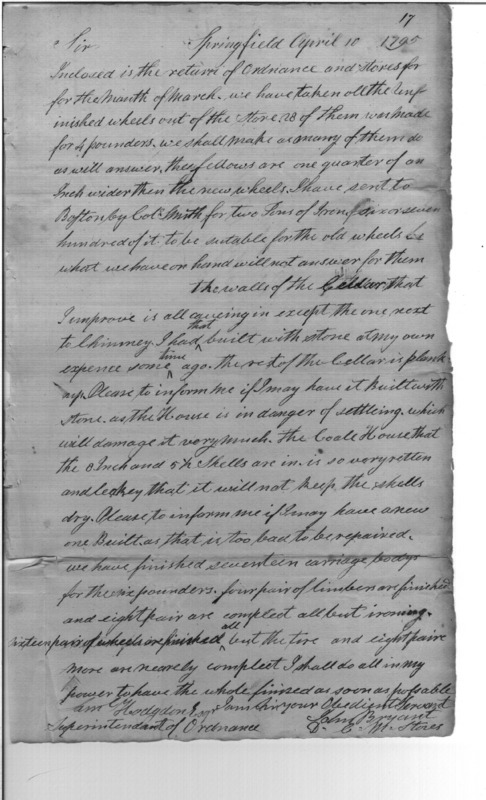 17
Sir Springfield April 10 1795
Inclosed is the return of Ordnance and Stores for
for the Month of March. we have taken all the unf
inished wheels out of the Store 28 of them was made
for 4 pounders. we shall make as many of them do
as will answer, the fellows are one quarter of an
Inch wider then the new wheels. I have sent to
Boston by Col. Smith for two Tons of Iron, six or seven
hundred of it to be sutable for the old wheels
what we have on hand will not answer for them
The walls of the Cellar, that
I improve is all caveing in except the one next
to Chimney I had that built with stone at my own
expence some time ago. the rest of the Cellar is plank
up. Please to inform me if I may have it built with
Stone. as the House is in danger of settling. which
will damage it very much. the Coale House that
the 8 Inch and 5½ Shells are in. is so very rotten
and leakey that it will not keep the shells
dry. Please to inform me if I may have a new
one Built. as that is too bad to be repaired.
we have finished seventeen carriage bodys
for the six pounders. four pair of limbers are finished
and eight pair are complect all but ironing.
sixteen pair of wheels are finished all but the tire and eight paire
more are nearely complect I shall do all in my
power to have the whole finised as soon as possable
Hodgdon Esqr I am Sir your Obedient Servant
Superintendant of Ordnance John Bryant
D. C. M. Stores